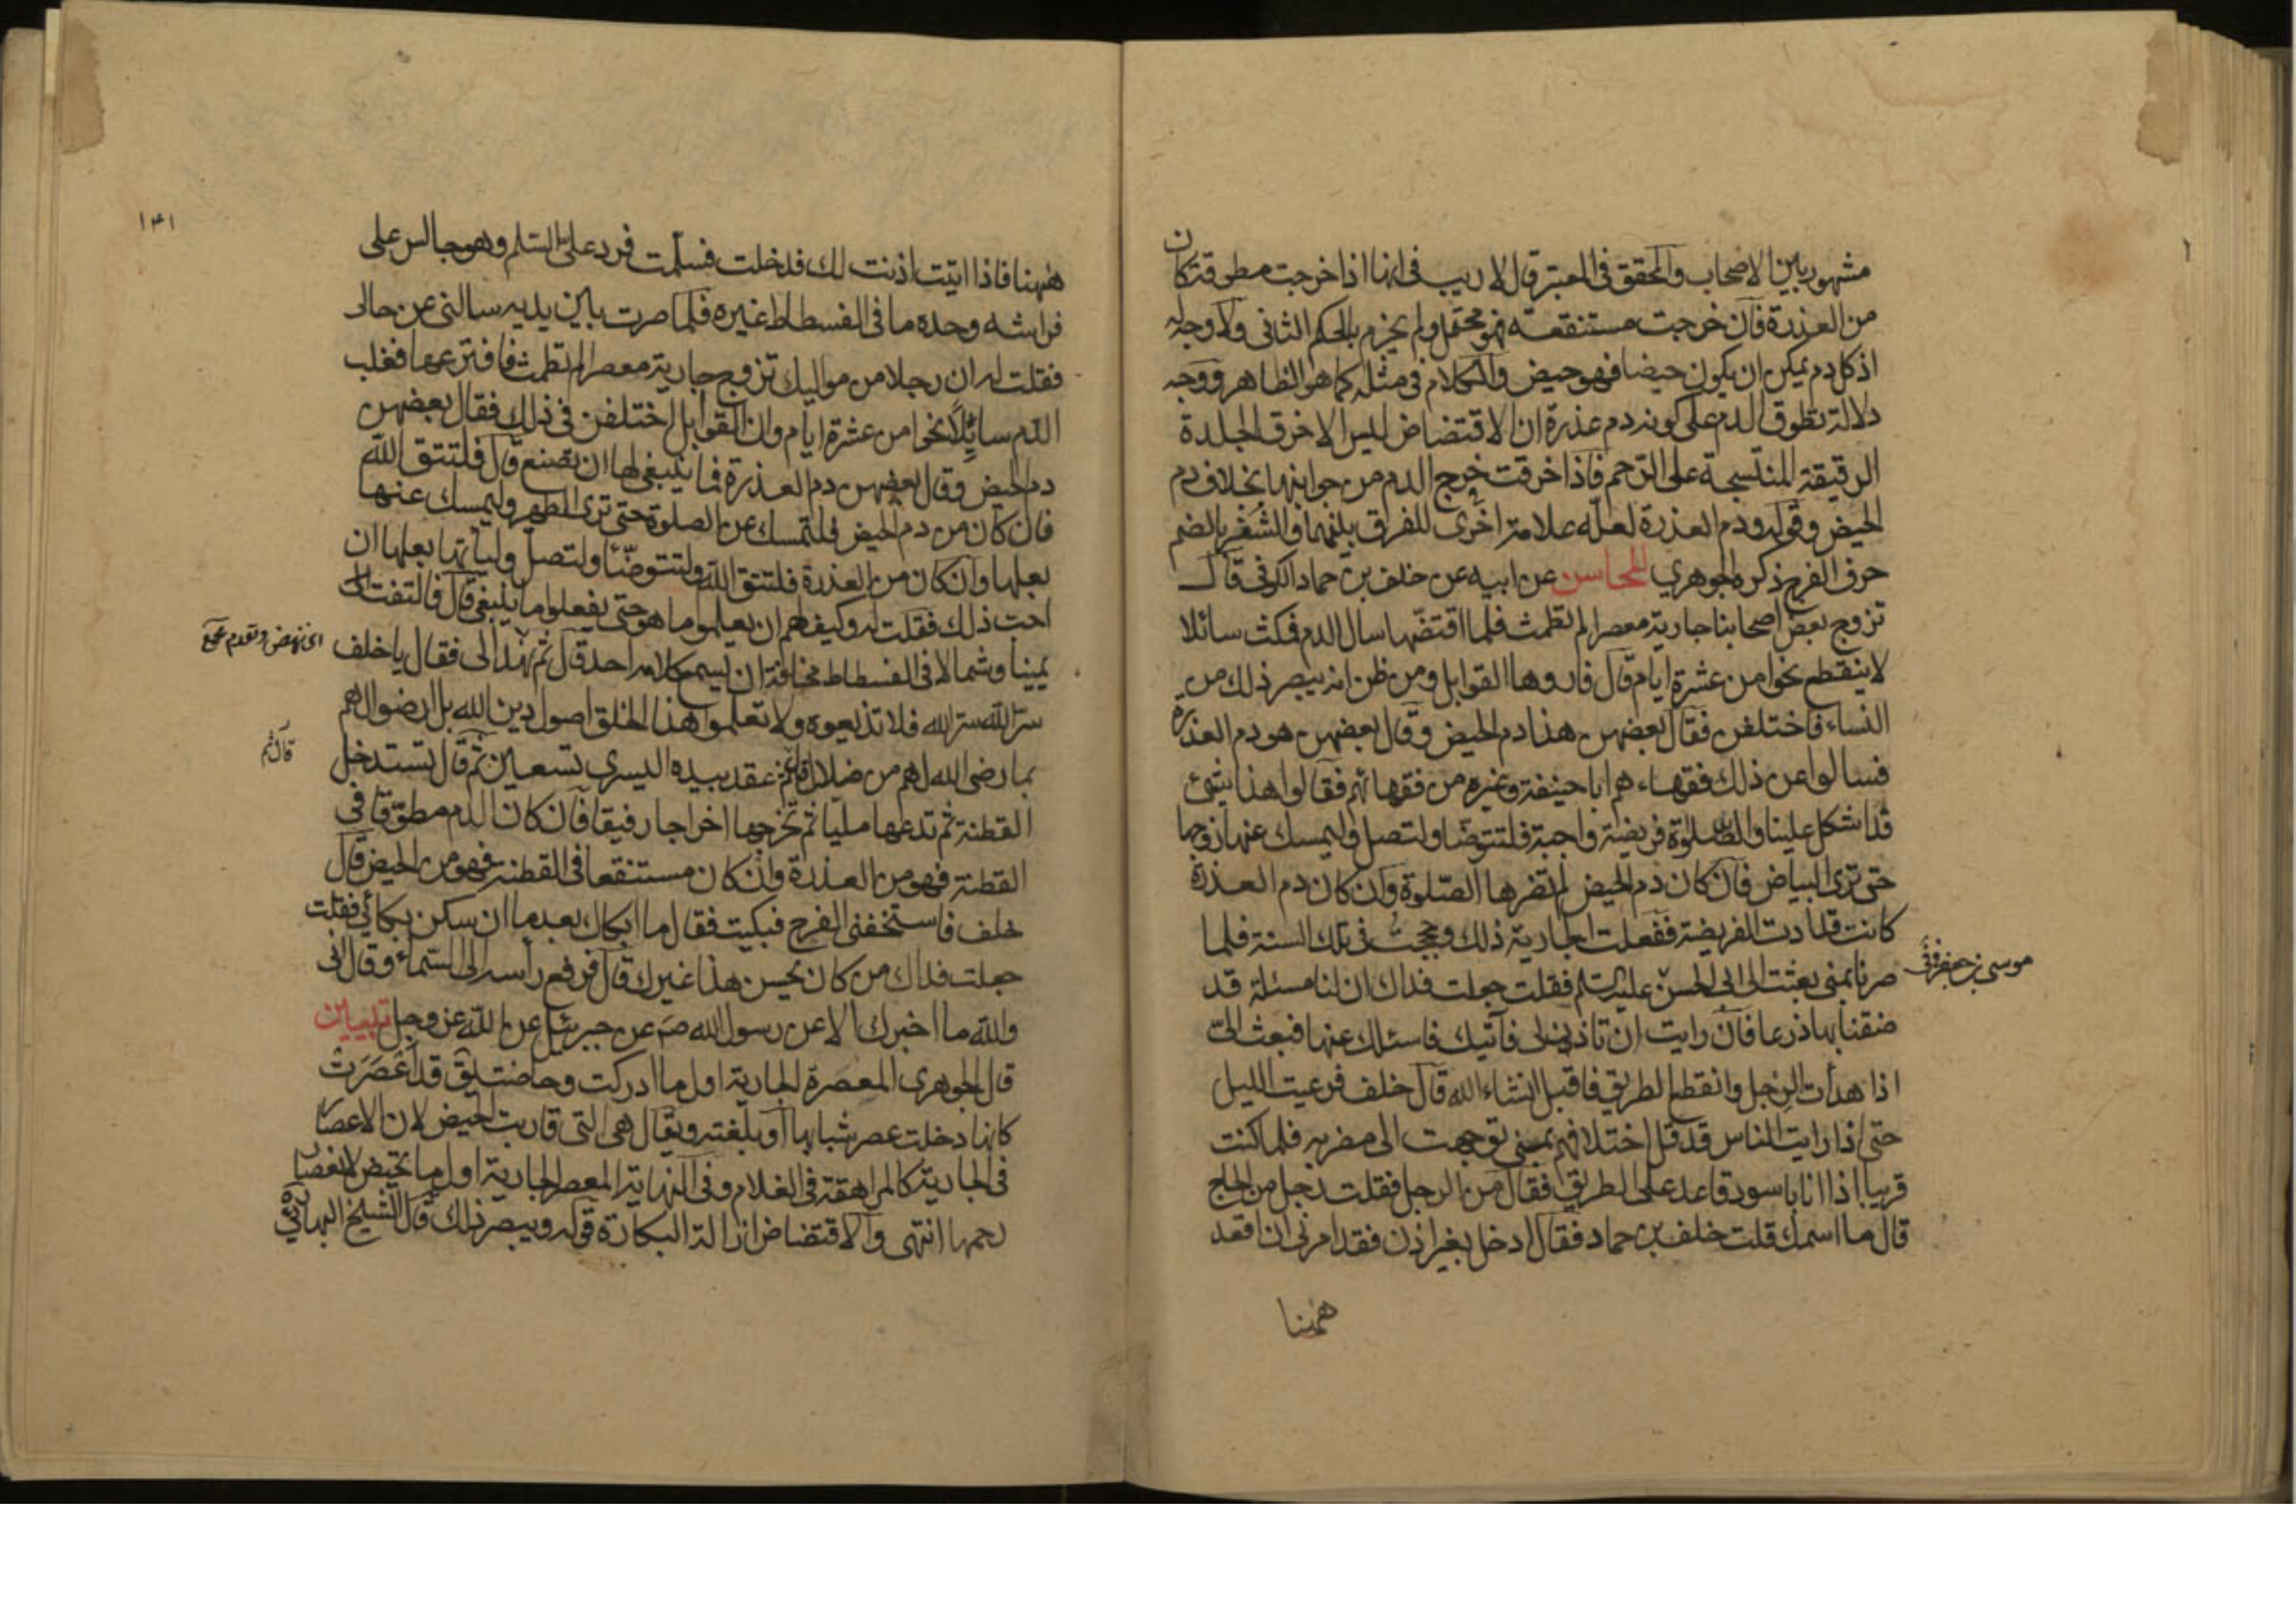 مشهور بين الاصحاب والمحقق في المعتبر قال لا ريب في انها اذا خرجت مطوقة كان
من العذرة فان خرجت مستنقعة فهو محتمل ولم يجزم بالحكم الثاني ولا وجه له
اذ كل دم يمكن ان يكون حيضا فهو حيض والكلام في مثله كما هو الظاهر ووجه
دلالة تطوق الدم على كونه دم عذرة ان الاقتضاض ليس الا خرق الجلدة
الرقيقة المنتسجة على الرحم فاذا خرقت خرج الدم من جوانبها بخلاف دم
الحيض وقوله ودم العذرة لعله علامة اخرى للفرق بينهما والشفر بالضم
حرف الفرج ذكره الجوهري المحاسن عن ابيه عن خلف بن حماد الكوفي قال
تزوج بعض اصحابنا جارية معصرا لم تطمث فلما اقتضها سال الدم فمكث سائلا
لا ينقطع نحوا من عشرة ايام قال فاروها القوابل ومن ظن انه يبصر ذلك من
النساء فاختلفن فقال بعضهن هذا دم الحيض وقال بعضهن هو دم العذرة
فسالوا عن ذلك فقهاءهم ابا حنيفة وغيره من فقهائهم فقالوا هذا شئ
قد اشكل علينا والصلوة فريضة واجبة فلتتوضا ولتصل وليمسك عنها زوجها
حتى ترى البياض فان كان دم الحيض لم تضرها الصلوة وان كان دم العذرة
كانت قد ادت الفريضة ففعلت الجارية ذلك وحججت في تلك السنة فلما
صرنا بمنى بعثت الى ابي الحسن عليه السلم فقلت جعلت فداك ان لنا مسئلة قد
موسى بن جعفر
ضقنا بها ذرعا فان رايت ان تاذن لي فآتيك فاسئلك عنها فبعث الي
اذا هدأت الرجل وانقطع الطريق فاقبل انشاء الله قال خلف فرعيت الليل
حتى اذا رايت الناس قد قل اختلافهم بمنى توجهت الى مضربه فلما كنت
قريبا اذا انا باسود قاعد على الطريق فقال من الرجل فقلت رجل من الحاج
قال ما اسمك قلت خلف بن حماد فقال ادخل بغير اذن فقد امرني ان اقعد
ههنا
١٣١
ههنا فاذا اتيت اذنت لك فدخلت فسلمت فرد علي السلم وهو جالس على
فراشه وحده ما في الفسطاط غيره فلما صرت بين يديه سالني عن حالي
فقلت له ان رجلا من مواليك تزوج جارية معصرا لم تطمث فافترعها فغلب
الدم سائلا نحوا من عشرة ايام وان القوابل اختلفن في ذلك فقال بعضهن
دم الحيض وقال بعضهن دم العذرة فما ينبغي لها ان تصنع قال فلتتق الله
فان كان من دم الحيض فلتمسك عن الصلوة حتى ترى الطهر وليمسك عنها
بعلها وان كان من العذرة فلتتق الله ولتتوضأ ولتصل ولياتها بعلها ان
احب ذلك فقلت له وكيف لهم ان يعلموا ما هو حتى يفعلوا ما ينبغي قال فالتفت
يمينا وشمالا في الفسطاط مخافة ان يسمع كلامه احد قال ثم نهد الي فقال يا خلف
اى نهض وتقدم
سر الله سر الله فلا تذيعوه ولا تعلموا هذا الخلق اصول دين الله بل ارضوا لهم
بما رضى الله لهم من ضلال ثم عقد بيده اليسرى تسعين ثم قال تستدخل
قال ثم
القطنة ثم تدعها مليا ثم تخرجها اخراجا رفيقا فان كان الدم مطوقا في
القطنة فهو من العذرة وان كان مستنقعا في القطنة فهو من الحيض قال
خلف فاستخفني الفرح فبكيت فقال ما ابكاك بعد ما ان سكن بكائي فقلت
جعلت فداك من كان يحسن هذا غيرك قال فرفع رأسه الى السماء وقال اني
والله ما اخبرك الا عن رسول الله ص عن جبرئيل عن الله عز وجل تبيين
قال الجوهري المعصرة الجارية اول ما ادركت وحاضت يق قد اعصرت
كانها دخلت عصر شبابها او بلغته ويقال هي التي قاربت الحيض لان الاعصار
في الجارية كالمراهقة في الغلام وفي النهاية المعصر الجارية اول ما تحيض لانعصار
رحمها انتهى والاقتضاض ازالة البكارة قوله ويبصر ذلك قال الشيخ البهائي ره